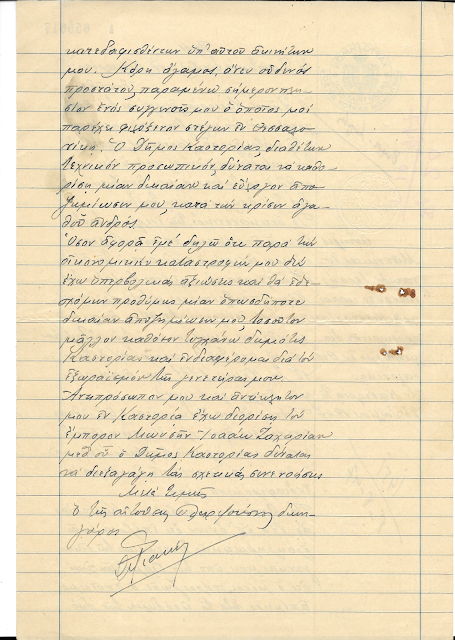 κατεδαφισθέντων ὑπ' αὐτοῦ ἀκινήτων
μου. Κόρη ἄγαμος, ἄνευ οὐδενὸς
προστάτου, παραμένω σήμερον πλη-
σίον ἑνὸς συγγενοῦς μου ὁ ὁποῖος μοὶ
παρέχει φιλόξενον στέγην ἐν Θεσσαλο-
νίκῃ. Ὁ Δῆμος Καστορίας, διαθέτων
τεχνικὸν προσωπικόν, δύναται νὰ καθο-
ρίσῃ μίαν δικαίαν καὶ εὔλογον ἀπο-
ζημίωσίν μου, κατὰ τὴν κρίσιν ἀγα-
θοῦ ἀνδρός.
Ὅσον ἀφορᾷ ἐμέ, δηλῶ ὅτι παρὰ τὴν
οἰκονομικὴν καταστροφήν μου δὲν
ἔχω ὑπερβολικὰς ἀξιώσεις καὶ θὰ ἐδε-
χόμην προθύμως μίαν ὁπωσδήποτε
δικαίαν ἀποζημίωσίν μου, τοσοῦτον
μᾶλλον καθόσον τυγχάνω δημότις
Καστορίας καὶ ἐνδιαφέρομαι διὰ τὸν
ἐξωραϊσμὸν τῆς γενετείρας μου.
Ἀντιπρόσωπόν μου καὶ ἀντίκλητόν
μου ἐν Καστορίᾳ ἔχω διορίσει τὸν
ἔμπορον Μωυσῆν Ἰσαὰκ Ζαχαρίαν
μεθ' οὗ ὁ Δῆμος Καστορίας δύναται
νὰ διεξαγάγῃ τὰς σχετικὰς συνεννοήσεις
Μετὰ τιμῆς
Ὁ τῆς αἰτούσης πληρεξούσιος δικη-
γόρος